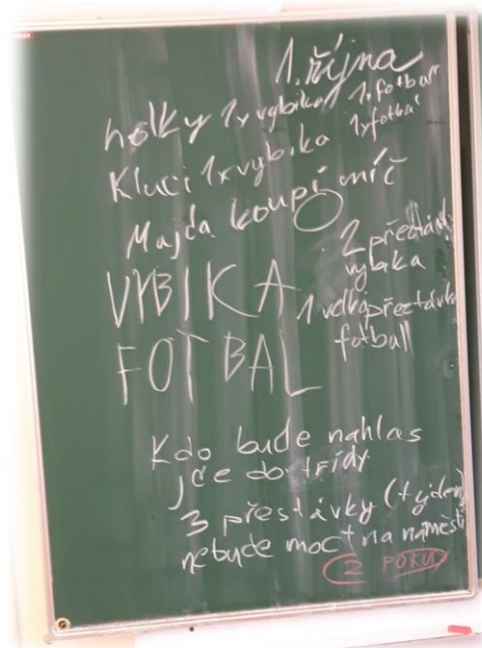 1. října
holky 1x vybika 1x fotball
Kluci 1x vybika 1x fotbal
Majda koupí míč
2 přestáv
vybika
VYBIKA
1 velká přeztávka
fotball
FOTBAL
Kdo bude nahlas
jde do třídy
3 přestávky (týden)
nebude moct na náměstí
2 POKU